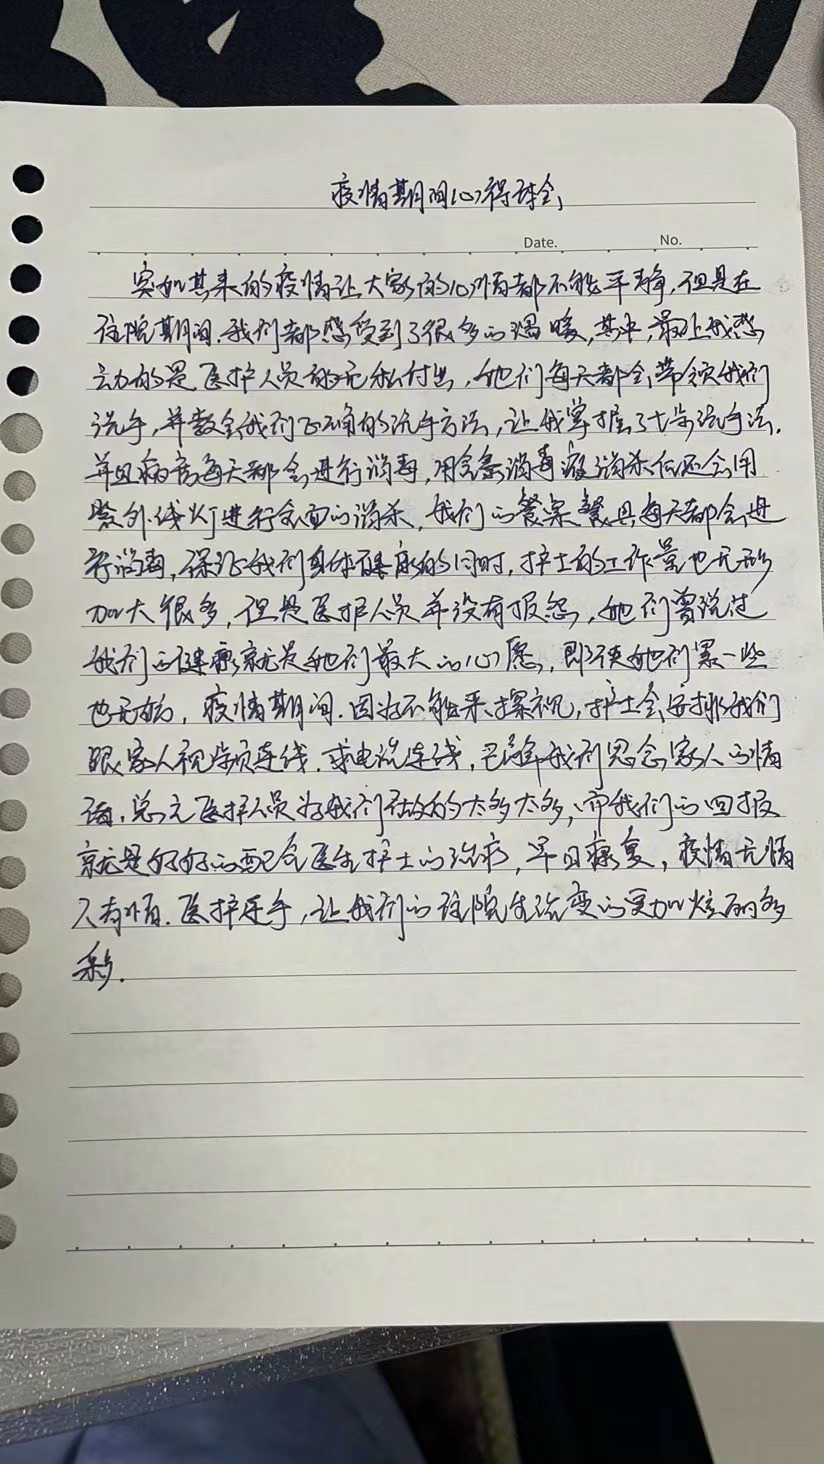 疫情期间心得体会
Date. No.
突如其来的疫情让大家的心情都不能平静,但是在
住院期间,我们都感受到了很多的温暖,其中,最让我感
动的是医护人员的无私付出,她们每天都会带领我们
洗手,并教会我们正确的洗手方法,让我掌握了七步洗手法.
并且病房每天都会进行消毒,用含氯消毒液消杀后还会用
紫外线灯进行全面的消杀,我们的餐桌餐具每天都会进
行消毒,保证我们身体健康的同时,护士的工作量也无形
加大很多,但是医护人员并没有报怨,她们曾说过
我们的健康就是她们最大的心愿,即使她们累一些
也无妨,疫情期间.因为不能来探视,护士会安排我们
跟家人视频连线.或电话连线,已解我们思念家人的情
绪,总之医护人员为我们做的太多太多,而我们的回报
就是好好的配合医生护士的治疗,早日康复,疫情无情
人有情.医护连手,让我们的住院生活变的更加炫丽多
彩.